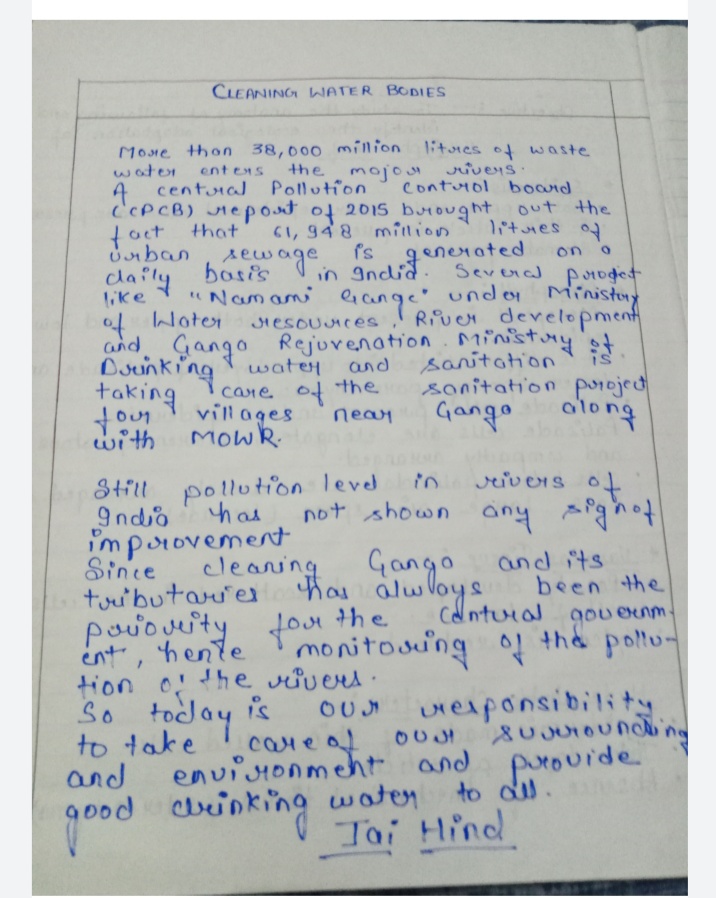 CLEANING WATER BODIES
More than 38,000 million litres of waste
water enters the major rivers.
A central Pollution Control board
(CPCB) report of 2015 brought out the
fact that 61,948 million litres of
urban sewage is generated on a
daily basis in India. Several project
like "Namami Gange" under Ministry
of Water resources, River development
and Ganga Rejuvenation. Ministry of
Drinking water and sanitation is
taking care of the sanitation project
four villages near Ganga along
with MOWR.
Still pollution level in rivers of
India has not shown any sign of
improvement
Since cleaning Ganga and its
tributaries has always been the
priority for the central governm-
ent, hence monitoring of the pollu-
tion of the rivers.
So today is our responsibility
to take care of our surrounding
and environment and provide
good drinking water to all.
Jai Hind